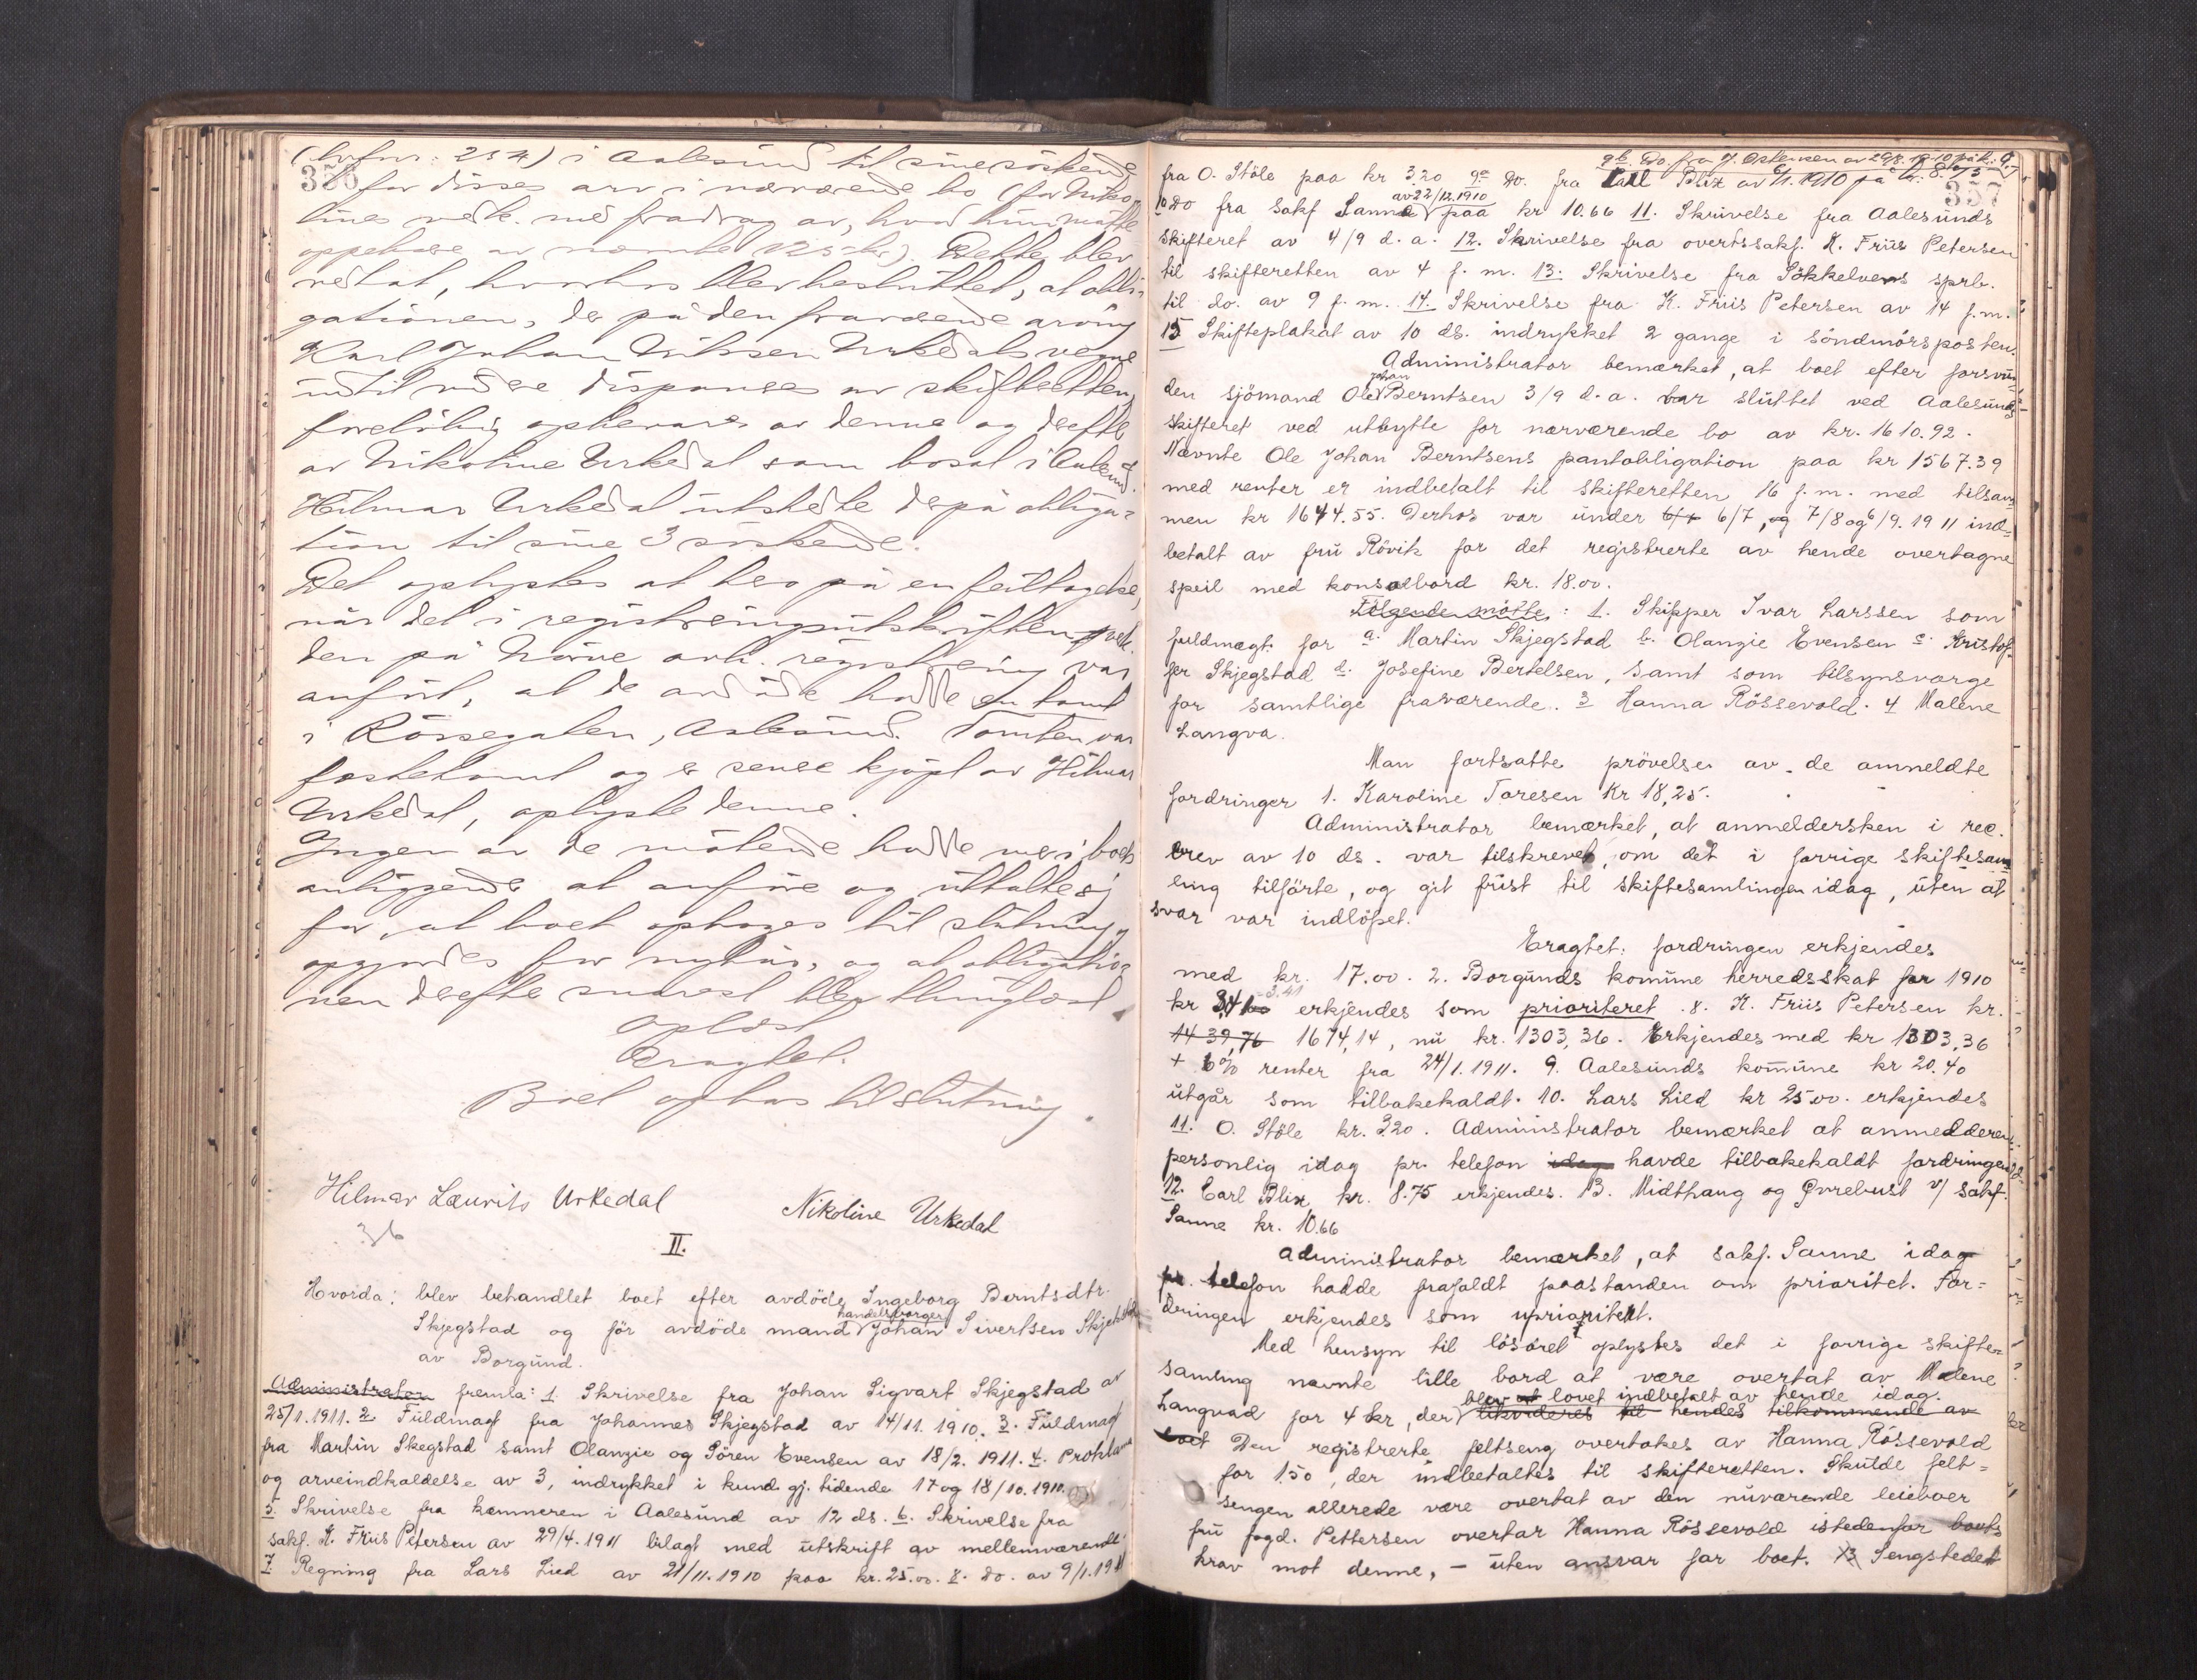 356
(brfnr: 234) i Aalesund til sine söskende
for disses arv i nærværende bo (for Niko-
lines vedk. med fradrag av, hvad hun måtte
oppebære av nævnte 125 kr). Dette blev
vedtat, hvorhos blev besluttet, at obli-
gationen, der på den fraværende arving
Karl Johan Nilssen Urkedals vegne
indtil videre disponeres av skifteretten,
foreløbig opbevares av denne og derefter
av Nikoline Urkedal som bosat i Aalesund.
Hilmar Urkedal utstedte derpå obliga-
tion til sine 3 söskende.
Det oplystes at bero på en feiltagelse,
når det i registreringsutskriften vedk.
den på Nörve avh. registrering var
anfört, at de avdöde hadde en tomt
i Rössegaten, Aalesund. Tomten var
festetomt og er senere kjöpt av Hilmar
Urkedal, oplyste denne.
Ingen av de mötende hadde mer i boets
anliggender at anföre og uttalte sig
for, at boet optages til slutning,
opgjordes för nytår, og at obligatio-
nen derefter snarest blev thinglæst
Oplæst
Eragtet.
Boet optas til slutning.
Hilmar Laurits Urkedal
Nikoline Urkedal
II.
Hvorda: blev behandlet boet efter avdöde Ingeborg Berntsdtr.
handelsborger
Skjegstad og för avdöde mand Johan Sivertsen Skjegstad
av Borgund.
Administrator fremla: 1. Skrivelse fra Johan Sigvart Skjegstad av
25/1.1911. 2. Fuldmagt fra Johannes Skjegstad av 14/11.1910. 3. Fuldmagt
fra Martin Skegstad samt Olanzie og Sören Evensen av 18/2.1911. 4. Proklama
og arveindkaldelse av 3, indrykket i kund.gj. tidende 17 og 18/10.1910.
5. Skrivelse fra kæmneren i Aalesund av 12 ds. 6. Skrivelse fra
sakf. K. Friis Petersen av 29/4.1911 bilagt med utskrift av mellemværendt.
7. Regning fra Lars Lied av 21/11.1910 paa kr. 25.00. 8. Do. av 9/1.1911
357
9b. Do. fra J. Ostensen av 29/8.1910 på k.: 9.
fra O. Stöle paa kr 3.20 9a Do. fra Carl Blix av 6/11.1910 på kr: 8.75
av 22/12.1910
10 Do fra sakf Sanne paa kr 10.66 11. Skrivelse fra Aalesunds
skifteret av 4/9 d.a. 12. Skrivelse fra overtssakf. K. Friis Petersen
til skifteretten av 4 f.m. 13. Skrivelse fra Sökkelvens sprb.
til do. av 9 f.m. 14. Skrivelse fra K. Friis Petersen av 14 f.m.
15. Skifteplakat av 10 ds. indrykket 2 gange i Söndmörsposten.
Administrator bemærket, at boet efter forsvun-
Johan
den sjömand Ole Berntsen 3/9 d.a. var sluttet ved Aalesunds
skifteret ved utbytte for nærværende bo av kr. 1610.92.
Nævnte Ole Johan Berntsens pantobligation paa kr 1567.39
med renter er indbetalt til skifteretten 16 f.m. med tilsam-
men kr 1644.55. Derhos var under 6/7, og 7/8 og 6/9.1911 ind-
betalt av fru Rövik for det registrerte av hende overtagne
speil med konsolbord kr. 18.00.
Fölgende mötte: 1. Skipper Ivar Larssen som
fuldmægt. for a. Martin Skjegstad b. Olanzie Evensen c. Kristof-
fer Skjegstad d. Josefine Bertelsen, samt som tilsynsværge
for samtlige fraværende. 3 Hanna Rössevold. 4 Malene
Langva.
Man fortsatte prövelsen av de anmeldte
fordringer 1. Karoline Toresen Kr 18,25.
Administrator bemærket, at anmeldersken i rec.
brev av 10 ds. var tilskrevet, om det i forrige skiftesam-
ling tilförte, og git frist til skiftesamlingen idag, uten at
svar var indlöpet.
Eragtet: fordringen erkjendes
med kr. 17.00. 2. Borgunds komune herredsskat for 1910
kr 3.41 erkjendes som prioriteret. 8. K. Friis Petersen kr.
1439,76 1674,14, nu kr. 1303,36. Erkjendes med kr 1303,36
+ 6% renter fra 24/1.1911. 9. Aalesunds komune kr 20.40
utgår som tilbakekaldt. 10. Lars Lied kr 25.00. erkjendes
11. O. Stöle kr. 3.20. Administrator bemærket at anmelderen
personlig idag pr. telefon idag havde tilbakekaldt fordringen
12. Carl Blix, kr. 8.75 erkjendes. 13. Midthaug og Gvrebust v/ sakf.
Sanne kr. 10.66
Administrator bemærket, at sakf. Sanne idag
pr. telefon hadde frafaldt paastanden om prioritet. For-
dringen erkjendes som uprioritert.
Med hensyn til lösöret oplystes det i forrige skifte-
samling nævnte lille bord at være overtat av Malene
blev at lovet indbetalt av hende idag.
Langvad for 4 kr, der likvideres til hendes tilkommende av
boet Den registrerte feltseng overtakes av Hanna Rössevold
for 1.50, der indbetaltes til skifteretten. Skulde felt-
sengen allerede være overtat av den nuværende leieboer
fru fogd. Pettersen overtar Hanna Rössevold istedenfor boets
krav mot denne, - uten ansvar for boet. Sengstedet